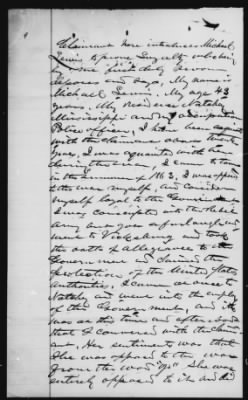 Claimant here introduces Michael
to prove loyalty
who being first duly sworn
deposes and says, My name is
Michael My age 43
years, My residence Natchez
Mississippi and my occupation
Police officer, I have been
with the claimant about
years, I was acquainted with her
during the war. I came to town
in the Summer of 1863, I was opposed
to the war myself, and consider
myself loyal to the Government
I was conscripted into the Rebel
army and got a furlough and
went to Vicksburg and took
the oath of allegiance to the
Government and claimed the
protection of the United States
authorities. I came as once to
Natchez and went into the employ
of the Government, and it
was at this time and after
that I conversed with the claim
ant. Her sentiments was that
She was opposed to the war
from the word "go" She was
entirely opposed to it and did